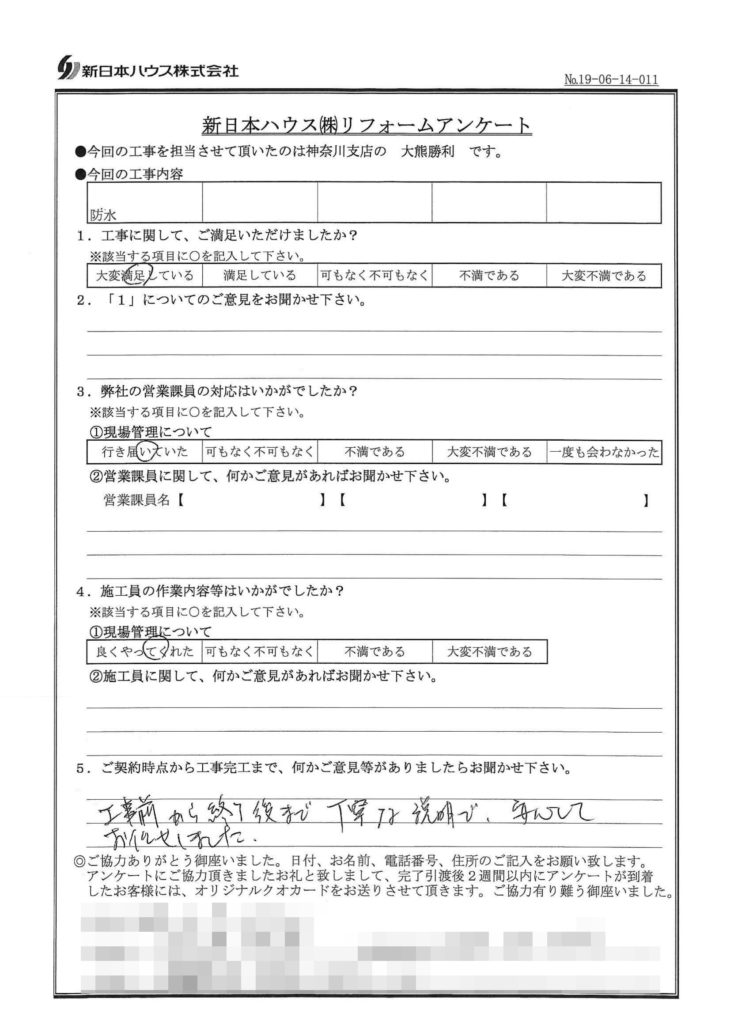 新日本ハウス株式会社
№19-06-14-011
新日本ハウス㈱リフォームアンケート
●今回の工事を担当させて頂いたのは神奈川支店の 大熊勝利 です。
●今回の工事内容
防水
1．工事に関して、ご満足いただけましたか？
※該当する項目に○を記入して下さい。
大変満足している 満足している 可もなく不可もなく 不満である 大変不満である
2．「1」についてのご意見をお聞かせ下さい。
3．弊社の営業課員の対応はいかがでしたか？
※該当する項目に○を記入して下さい。
①現場管理について
行き届いていた 可もなく不可もなく 不満である 大変不満である 一度も会わなかった
②営業課員に関して、何かご意見があればお聞かせ下さい。
営業課員名【 】【 】【 】
4．施工員の作業内容等はいかがでしたか？
※該当する項目に○を記入して下さい。
①現場管理について
良くやってくれた 可もなく不可もなく 不満である 大変不満である
②施工員に関して、何かご意見があればお聞かせ下さい。
5．ご契約時点から工事完工まで、何かご意見等がありましたらお聞かせ下さい。
工事前から終了後まで丁寧な説明で、安心して
お任せしました。
◎ご協力ありがとう御座いました。日付、お名前、電話番号、住所のご記入をお願い致します。
アンケートにご協力頂きましたお礼と致しまして、完了引渡後２週間以内にアンケートが到着
したお客様には、オリジナルクオカードをお送りさせて頂きます。ご協力有り難う御座いました。